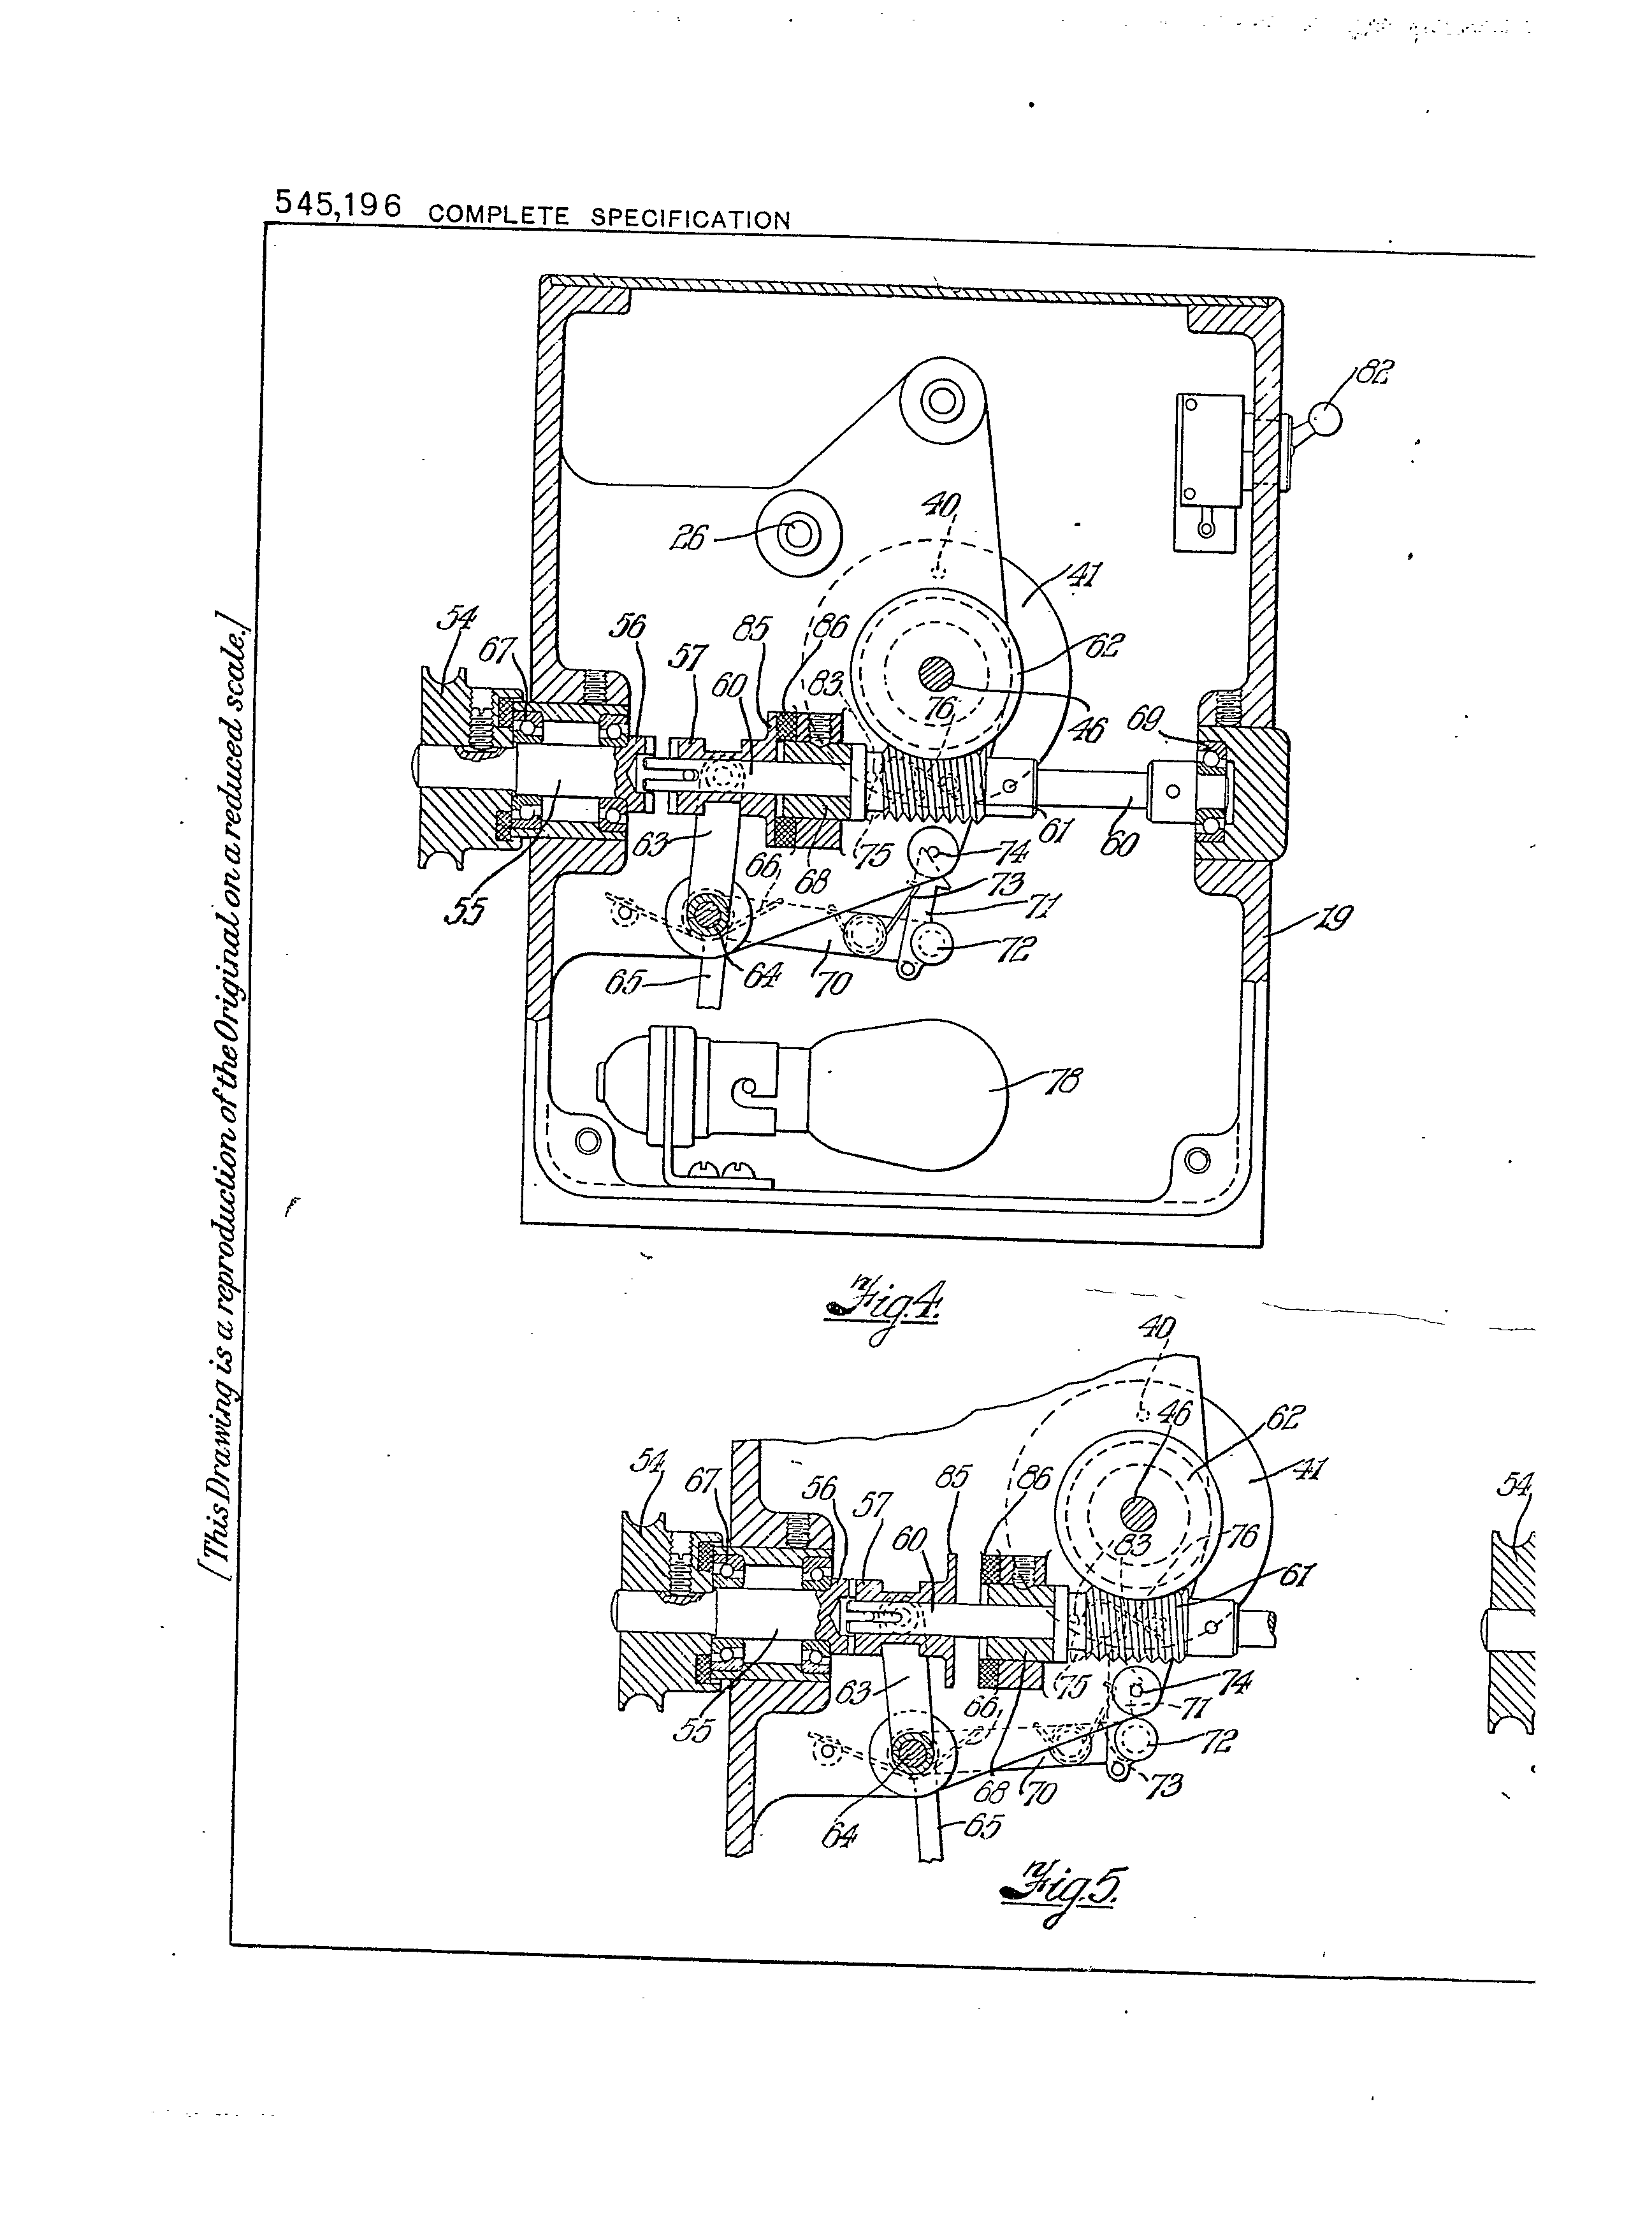 545,196 COMPLETE SPECIFICATION
[This Drawing is a reproduction of the Original on a reduced scale.]
82
40
26
41
54
67
56
57
85
86
60
83
62
76
46
69
61
60
63
66
68
75
74
73
71
72
55
65
64
70
19
78
Fig.4.
40
46
62
41
54
67
56
57
85
86
60
83
76
61
54
63
66
75
74
71
72
55
73
68
70
64
65
Fig.5.